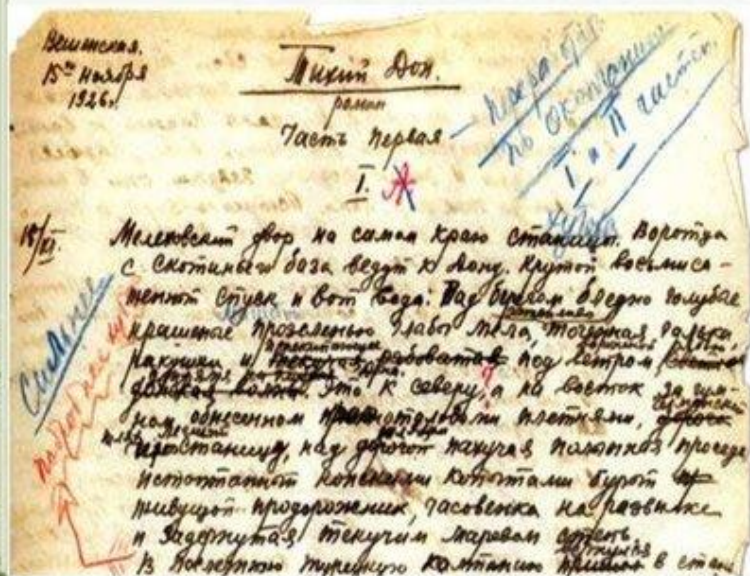 Вешенская.
15го ноября
1926г.
Тихий Дон.
роман
Часть первая
I.
по окончании
I и II части.
хутора
15/XI.
Мелеховский двор на самом краю станицы. Воротца
с скотиньего база ведут к Дону. Крутой восьмиса-
женный спуск и вот вода: Над берегом бледно голубые
крашеные прозеленью глабы мела, точеная галька,
ракушки и под ветром
донская волна. Это к северу, а на восток за гум-
ном обнесенном плетнями,
станицу, над дорогой пахучая полынная проседь
истоптанный конскими копытами бурый
живущой придорожник, часовенка на развилке
и задернутая текучим маревом степь.
В последнюю турецкую кампанию в стан
Сильнее
подробнее